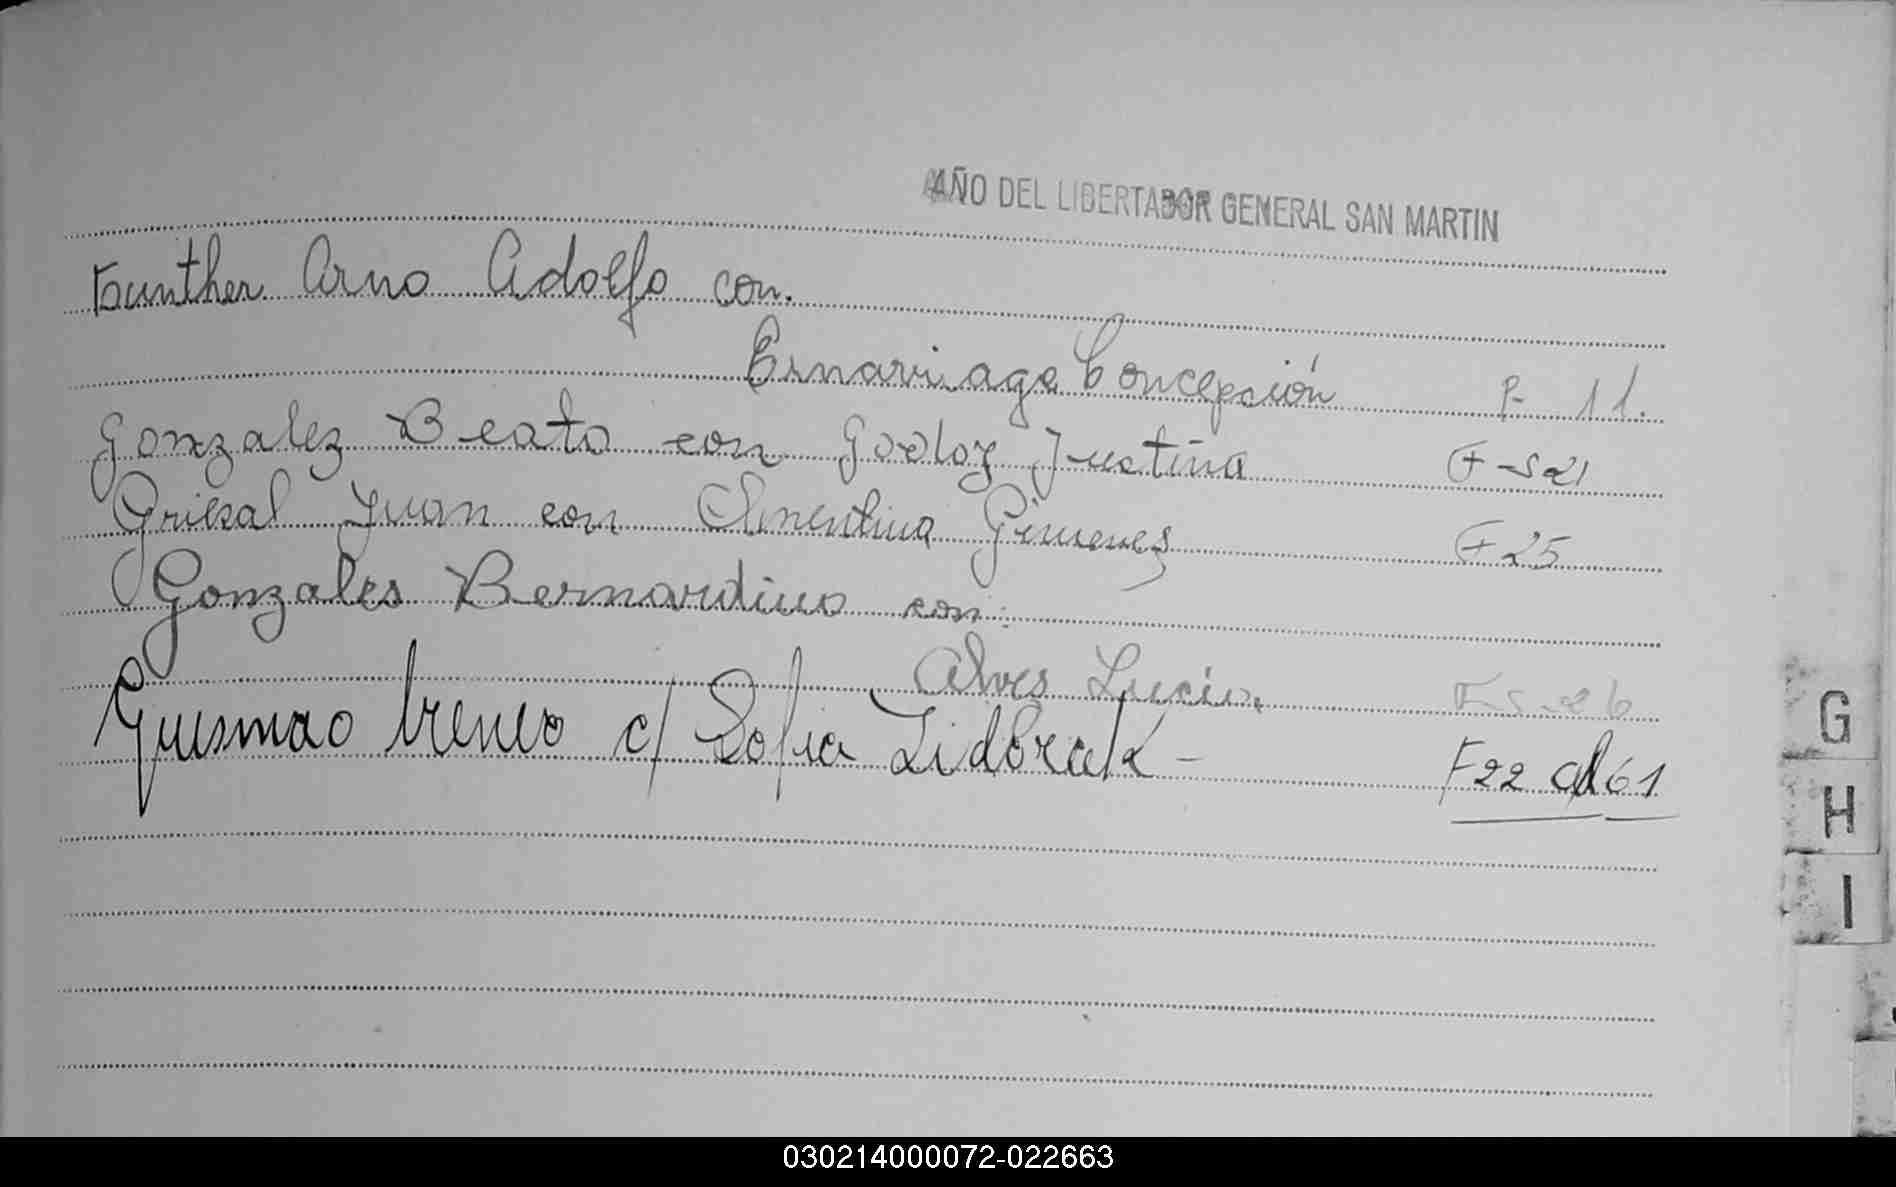 AÑO DEL LIBERTADOR GENERAL SAN MARTIN
Gunther Arno Adolfo con.
Ernarriaga Concepción F- 11.
Gonzalez Beato con Godoy Justina F-S21
Griesal Juan con Clementina Gimenez F 25
Gonzales Bernardino con:
Alves Lucia. Fs 26
Gusmao Ireneo c/ Sofia Lidbrak - F22 61
G
H
I
030214000072-022663